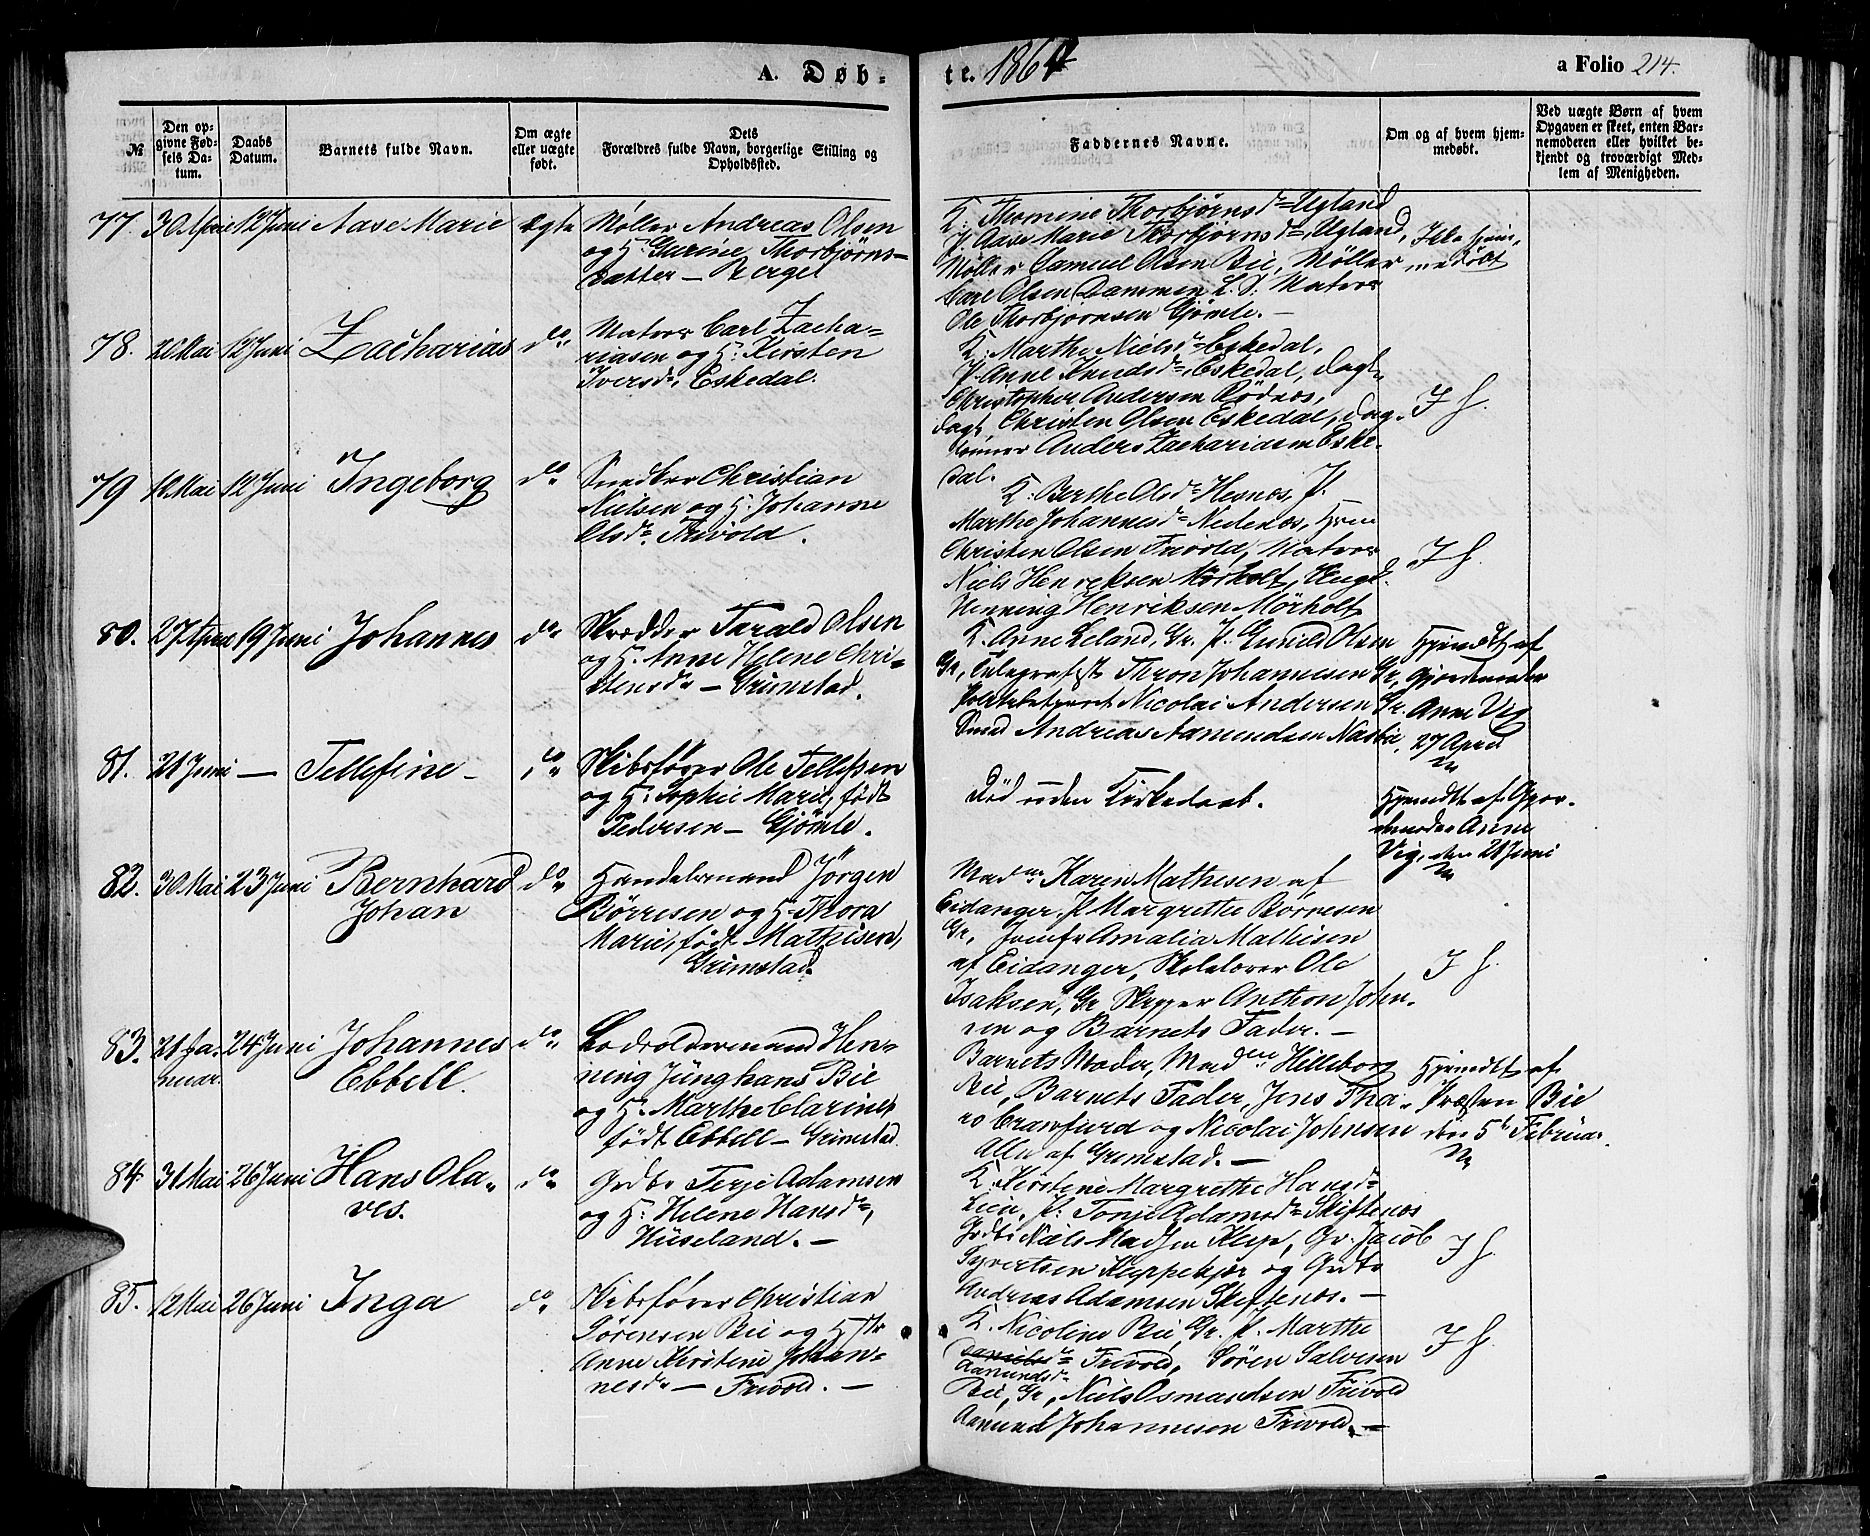 A. Døb-
te. 1864
a Folio 214.
№
Den op-
givne Fød-
sels Da-
tum.
Daabs
Datum.
Barnets fulde Navn.
Om ægte
eller uægte
født.
Dets
Forældres fulde Navn, borgerlige Stilling og
Opholdssted.
Faddernes Navne.
Om og af hvem hjem-
medøbt.
Ved uægte Børn af hvem
Opgaven er skeet, enten Bar-
nemoderen eller hvilket be-
kjendt og troværdigt Med-
lem af Menigheden.
77. 30 April 12 Juni Aase Marie ægte
Møller Andreas Olsen
og H. Gurine Thorbjørns-
datter — Berge
K. Thomine Thorbjørnsd. Ugland
P. Aase Marie Thorbjørnsd. Ugland,
Møller Samuel Olsen Bie, Møller
Carl Olsen Dammen L. S. Matros
Ole Thorbjørnsen Gjömle. —
Ikke hjem-
medøbt
78. 20 Mai 12 Juni Zacharias do.
Matros Carl Zacha-
riasen og H. Kirsten
Iversd., Eskedal.
K. Marthe Nielsd. Eskedal,
P. Anne Knudsd. Eskedal, Dagl.
Christopher Andersen Rödnes,
Dagl. Christen Olsen Eskedal, Dag-
Anders Zachariasen Eske-
dal.
I H.
79 12 Mai 12 Juni Ingeborg do
Snedker Christian
Nielsen og H. Johanne
Olsd. Frivold.
K. Berthe Olsd. Hesnes, P.
Marthe Johannesd. Nedenes,
Christen Olsen Frivold, Matros
Niels Henriksen Mörholt, Ungk.
Henning Henriksen Mörholt
I H.
80. 27 April 19 Juni Johannes do
Skrædder Tarald Olsen
og H. Anne Helene Chri-
stensd. — Grimstad.
K. Anne Leland, Gr. P. Gunild Olsen
Gr., Telegrafist Thron Johannesen Gr,
Politibetjent Nicolai Andersen Gr.
Smed Andreas Aamundsen
Hjemdt af
Gjordemoder
Anne Vig
27 April
81. 21 Juni — Tellefine — do
Skibsfører Ole Tellefsen
og H. Sophie Marie, født
Pedersen — Gjömle.
Död uden Kirkedaab.
Hjemdt af Gjor-
demoder Anne
Vig, den 21 Juni
82. 30 Mai 23 Juni Bernhard do
Johan
Handelsmand Jörgen
Börresen og H. Thora
Marie, født Mathisen,
Grimstad.
Madme Karen Mathesen af
Eidanger. P. Margrethe Börresen
Gr, Jomfr Amalia Mathisen
af Eidanger, Skolelærer Ole
Isaksen, Gr Skipper Anthon
sen og Barnets Fader. —
I H.
83. 21 Ja- 24 Juni Johannes do
nuar. Ebbell.
Lodsoldermand Hen-
ning Junghans Bie
og H. Marthe Clarine,
født Ebbell — Grimstad
Barnets Moder, Madme Hilleborg
Bie, Barnets Fader, Jens Tha-
ro Crawfurd og Nicolai Johnsen
Alle af Grimstad. —
Hjemdt af
Præsten Bie
den 5te Februar.
84. 31 Mai 26 Juni Hans Ola- do
ves.
Grdbr Terje Adamsen
og H. Helene Hansd.,
Huseland. —
K. Kerstine Margrethe Hansd.
Lien, P. Tonje Adamsd. Skiftenes
Grdbr Niels Madsen Klep, Gr. Jacob
Syvertsen Kleppekjær og Grdbr
Andreas Adamsen Skiftenes. —
I H.
85. 12 Mai 26 Juni Inga do
Skibsfører Christian
Sörensen Bie og Hstr
Anne Kirstine Johan-
nesd. — Frivold. —
K. Nicoline Bie, Gr. P. Marthe
Danielsd. Frivold, Sören Salvesen
Aamundsd.
Bie, Gr., Niels Osmundsen Frivold
Aamund Johannesen Frivold. —
I H.